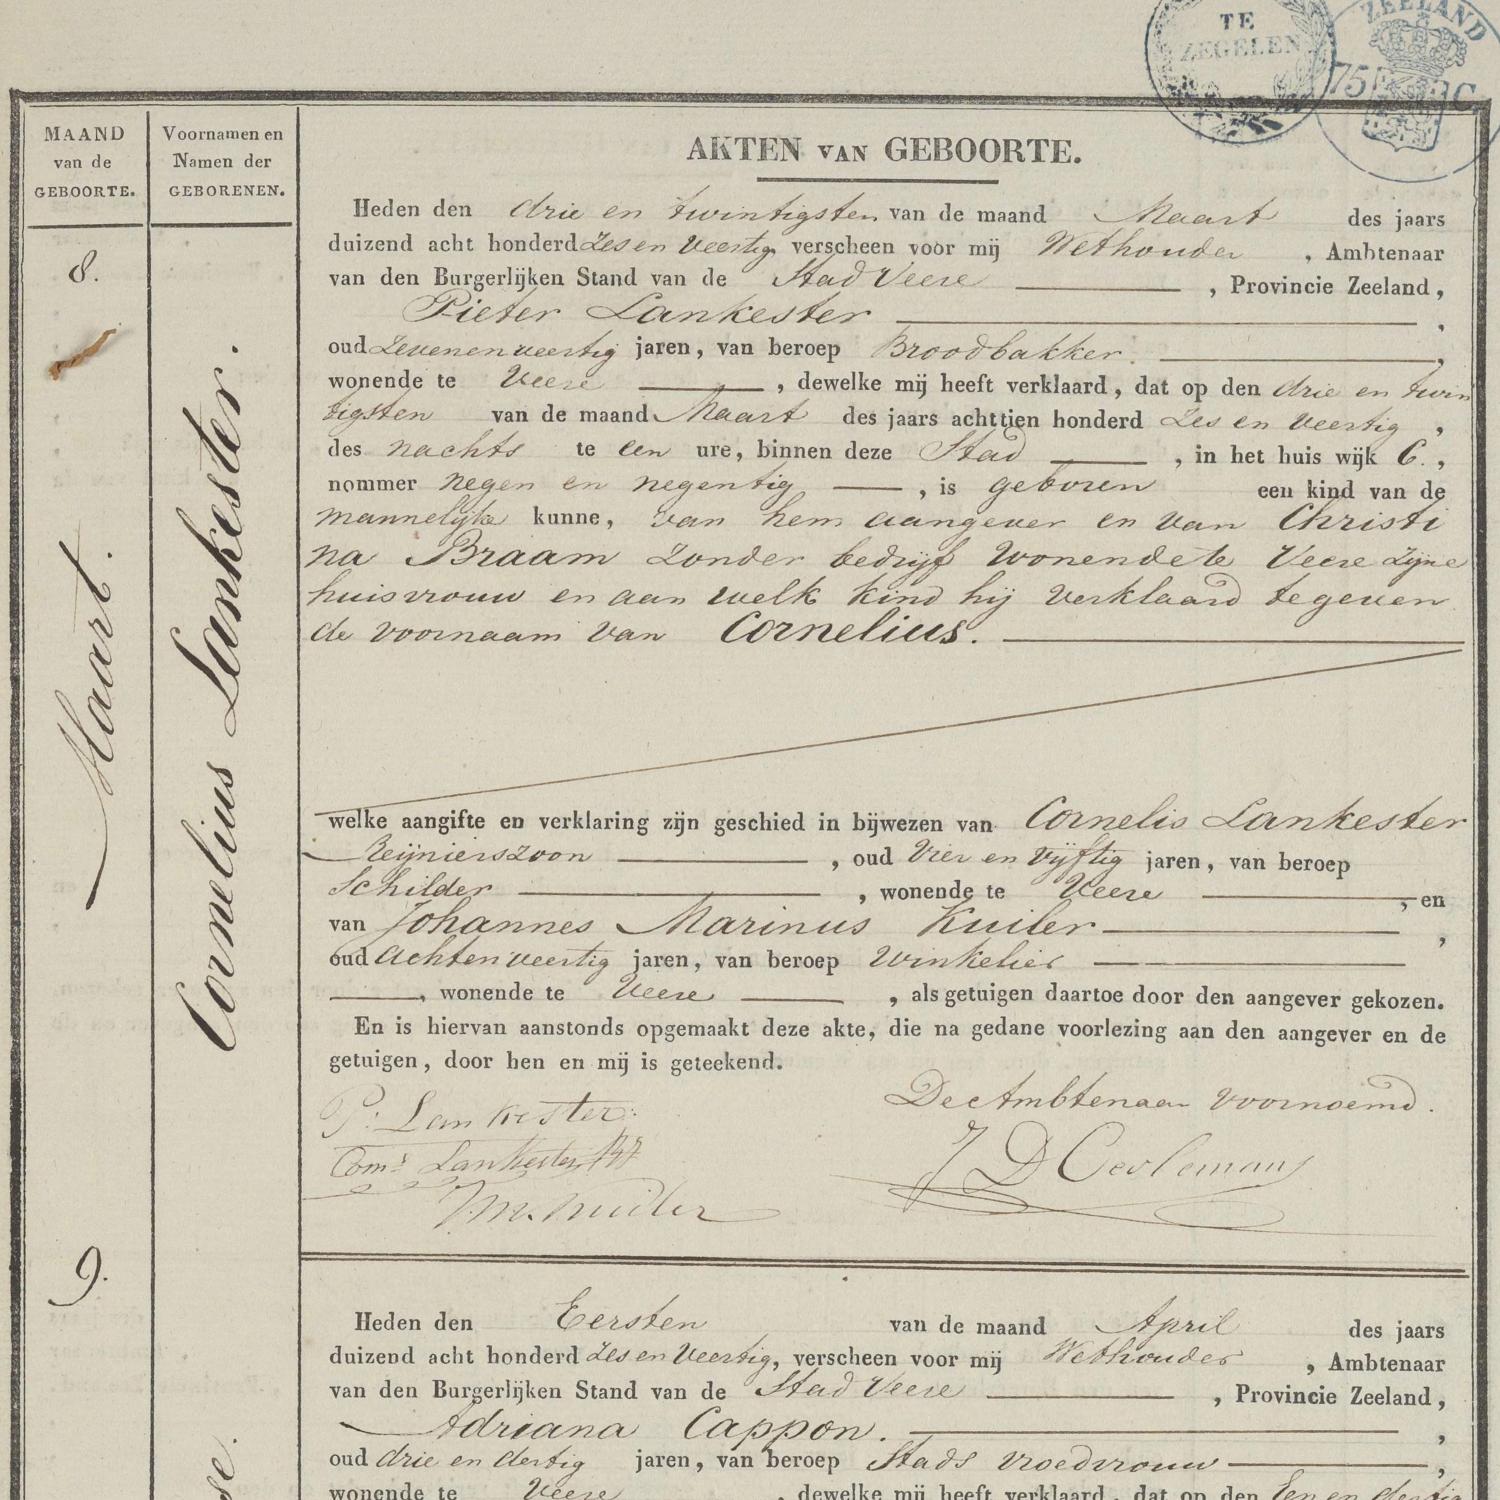 TE
ZEGELEN
ZEELAND
75 C.
MAAND
van de
GEBOORTE.
Voornamen en
Namen der
GEBORENEN.
AKTEN VAN GEBOORTE.
8.
Maart.
Cornelius Lankester.
Heden den drie en twintigsten van de maand Maart des jaars
duizend acht honderd Zes en Veertig verscheen voor mij Wethouder , Ambtenaar
van den Burgerlijken Stand van de Stad Veere , Provincie Zeeland,
Pieter Lankester ,
oud Zevenenveertig jaren, van beroep Broodbakker. ,
wonende te Veere , dewelke mij heeft verklaard, dat op den drie en twin
tigsten van de maand Maart des jaars achttien honderd Zes en Veertig ,
des nachts te een ure, binnen deze Stad , in het huis wijk C. ,
nommer negen en negentig , is geboren een kind van de
mannelijke kunne, van hem aangever en van Christi
na Braam zonder bedrijf wonende te Veere zijne
huisvrouw en aan welk kind hij verklaard te geven
de voornaam van Cornelius.
welke aangifte en verklaring zijn geschied in bijwezen van Cornelis Lankester
Reijnierszoon , oud Vier en Vijftig jaren, van beroep
Schilder , wonende te Veere , en
van Johannes Marinus Kuiler ,
oud Achtenveertig jaren, van beroep Winkelier
, wonende te Veere , als getuigen daartoe door den aangever gekozen.
En is hiervan aanstonds opgemaakt deze akte, die na gedane voorlezing aan den aangever en de
getuigen, door hen en mij is geteekend.
P: Lankester.
De Ambtenaar voornoemd.
Corns Lankester
J M Kuiler
9.
Heden den Eersten van de maand April des jaars
duizend acht honderd Zes en Veertig, verscheen voor mij Wethouder , Ambtenaar
van den Burgerlijken Stand van de Stad Veere , Provincie Zeeland,
Adriana Cappon. ,
oud drie en dertig jaren, van beroep Stads vroedvrouw ,
wonende te Veere , dewelke mij heeft verklaard, dat op den Een en dertig